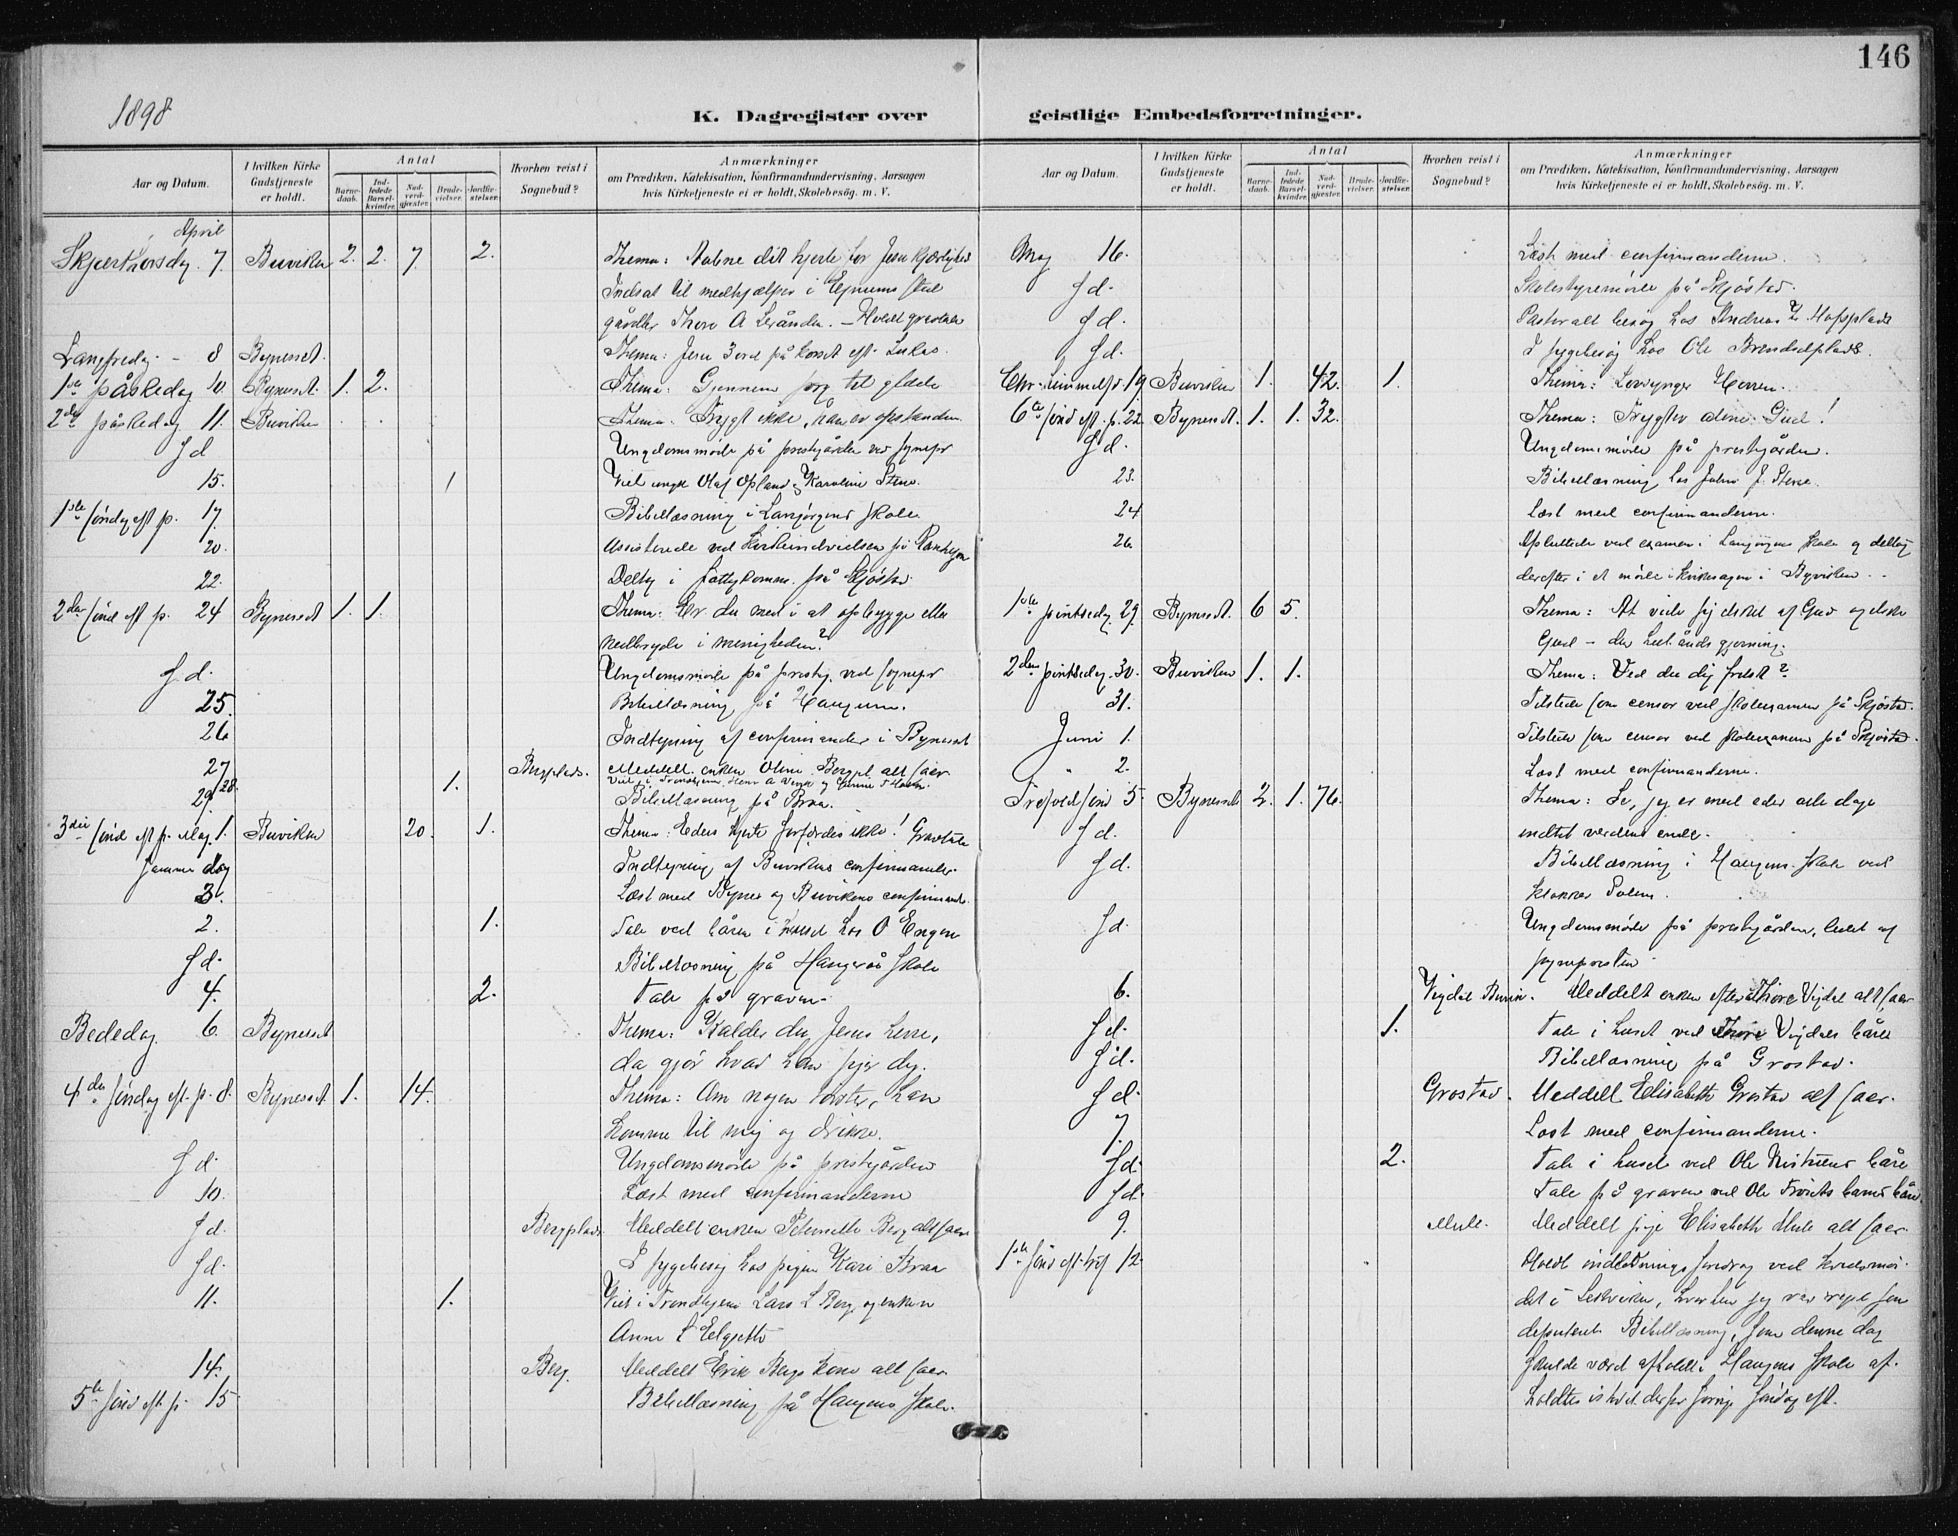 146
1898
K. Dagregister over geistlige Embedsforretninger.
Aar og Datum.
I hvilken Kirke Gudstjeneste er holdt.
Antal
Barne-daab.
Ind-ledede Barsel-kvinder.
Nad-verd-gjæster.
Brude-vielser.
Jordfæ-stelser.
Hvorhen reist i Sognebud?
Anmærkninger
om Prædiken, Katekisation, Konfirmandundervisning, Aarsagen
hvis Kirketjeneste ei er holdt, Skolebesøg. m. V.
April
Skjærthorsdag 7 Buviken 2. 2. 7 2. Thema: Aabne dit hjerte for Jesu kjærlighed
Indsat til medhjælper i
gårdbr Thore A
Langfredag - 8 Bynesset. Thema: Jesu 3 ord på korset eft. Lukas.
1ste påskedag 10 Bynesset. 1. 2. Thema: Gjennem sorg til glæde
2den påskedag 11. Buviken Thema: Frygt ikke, han er opstanden
S d Ungdomsmøde på prestgården ved sognepr
15. 1 Viet ungk Olaf Opland & Karoline Stene.
1ste søndag eft p. 17 Bibellæsning i skole
20. Assisterede ved Kirkeindvielsen på
22. Deltog i fattigkomm. på Skjøstad
2den sønd eft p. 24 Bynesset 1. 1. Thema: Er du med i at opbygge eller
nedbryde i menigheden?
S.d. Ungdomsmøde på prestg. ved sognepr
25. Bibellæsning på Haugum.
26 Indtegning af confirmander i Bynesset
27 Bergplads. Meddelt enken Oline Bergpl alt saer.
28. 1. Viet i Trondhjem
29 Bibellæsning på Braa.
3die sønd eft p. Maj 1. Buviken 20. 1. Thema: Eders hjerte forfærdes ikke! Gravtale
samme dag Indtegning af Buvikens confirmander.
3. Læst med Bynes og Buvikens confirmand.
2. 1. Tale ved båren i huset hos O Engen
S d. Bibellæsning på skole
4. 2. Tale på graven.
Bededag 6. Bynesset Thema: Kalder du Jesus herre,
da gjør hvad han siger dig.
4de søndag eft. p. 8. Bynesset. 1. 14. Thema: Om nogen tørster, han
komme til mig og drikke.
S d. Ungdomsmøde på prestgården
10. Læst med confirmanderne
S d. Bergplads. Meddelt enken Berg alt saer
S d. I sygebesøg hos pigen Kari Braa
11. 1. Viet i Trondhjem Lars L Berg og enken
Anne L
14. Berg. Meddelt Erik Bergs kone alt saer
5te sønd eft p. 15 Bibellæsning på Haugens skole.
Aar og Datum.
I hvilken Kirke Gudstjeneste er holdt.
Antal
Barne-daab.
Ind-ledede Barsel-kvinder.
Nad-verd-gjæster.
Brude-vielser.
Jordfæ-stelser.
Hvorhen reist i Sognebud?
Anmærkninger
om Prædiken, Katekisation, Konfirmandundervisning, Aarsagen
hvis Kirketjeneste ei er holdt, Skolebesøg. m. V.
Maj 16. Læst med confirmanderne.
S d. Skolestyremøde på Skjøstad.
S d. Pastoralt besøg hos Andreas
S d. I sygebesøg hos Ole
Chr. himmelf. 19. Buviken 1. 42. 1. Thema: Lovsynger Herren.
6te sønd eft. p. 22. Bynesset. 1. 1. 32. Thema: Frygter alene Gud!
S d. Ungdomsmøde på prestgården.
23. Bibellæsning hos John J. Stene.
24 Læst med confirmanderne.
26. ved examen i skole og deltog
derefter i et møde i kirkesagen i Byviken.
1ste pintsedag 29. Bynesset. 6 5. Thema: At vide sig elsket af Gud og elske
Gud – den hell. ånds gjerning.
2den pintsedag 30. Buviken 1. 1. Thema: Ved du dig frelst?
31. Tilstede som censor ved skolexamen på Skjøstad.
Juni 1. Tilstede som censor ved skolexamen på Skjøstad.
2. Læst med confirmanderne.
Tref. sønd 5. Bynesset 2. 1. 76. Thema: Se, jeg er med eder alle dage
indtil verdens ende.
S d. Bibellæsning i Haugens skole ved
S d. Ungdomsmøde på prestgården, ledet af
sognepresten
6. Vigdal Buvik. Meddelt enken efter Thore Vigdal alt saer
S d. 1. Tale i huset ved Thore Vigdals båre
S d. Bibellæsning på Grostad.
S d. Grostad. Meddelt Elisabeth Grostad alt saer.
7. Læst med confirmanderne.
S d. 2. Tale i huset ved Ole båre
S d. Tale på graven ved Ole båre
9. Mule. Meddelt pige Elisabeth Mule alt saer.
1ste sønd eft. tref 12 Holdt indledningsforedrag ved kredsmø-
det i Leksviken, hvorhen jeg var rejst som
deputeret. Bibellæsning, som denne dag
skulde været afholdt i Haugens skole af-
holdtes istedet derfor forrige søndag eft.